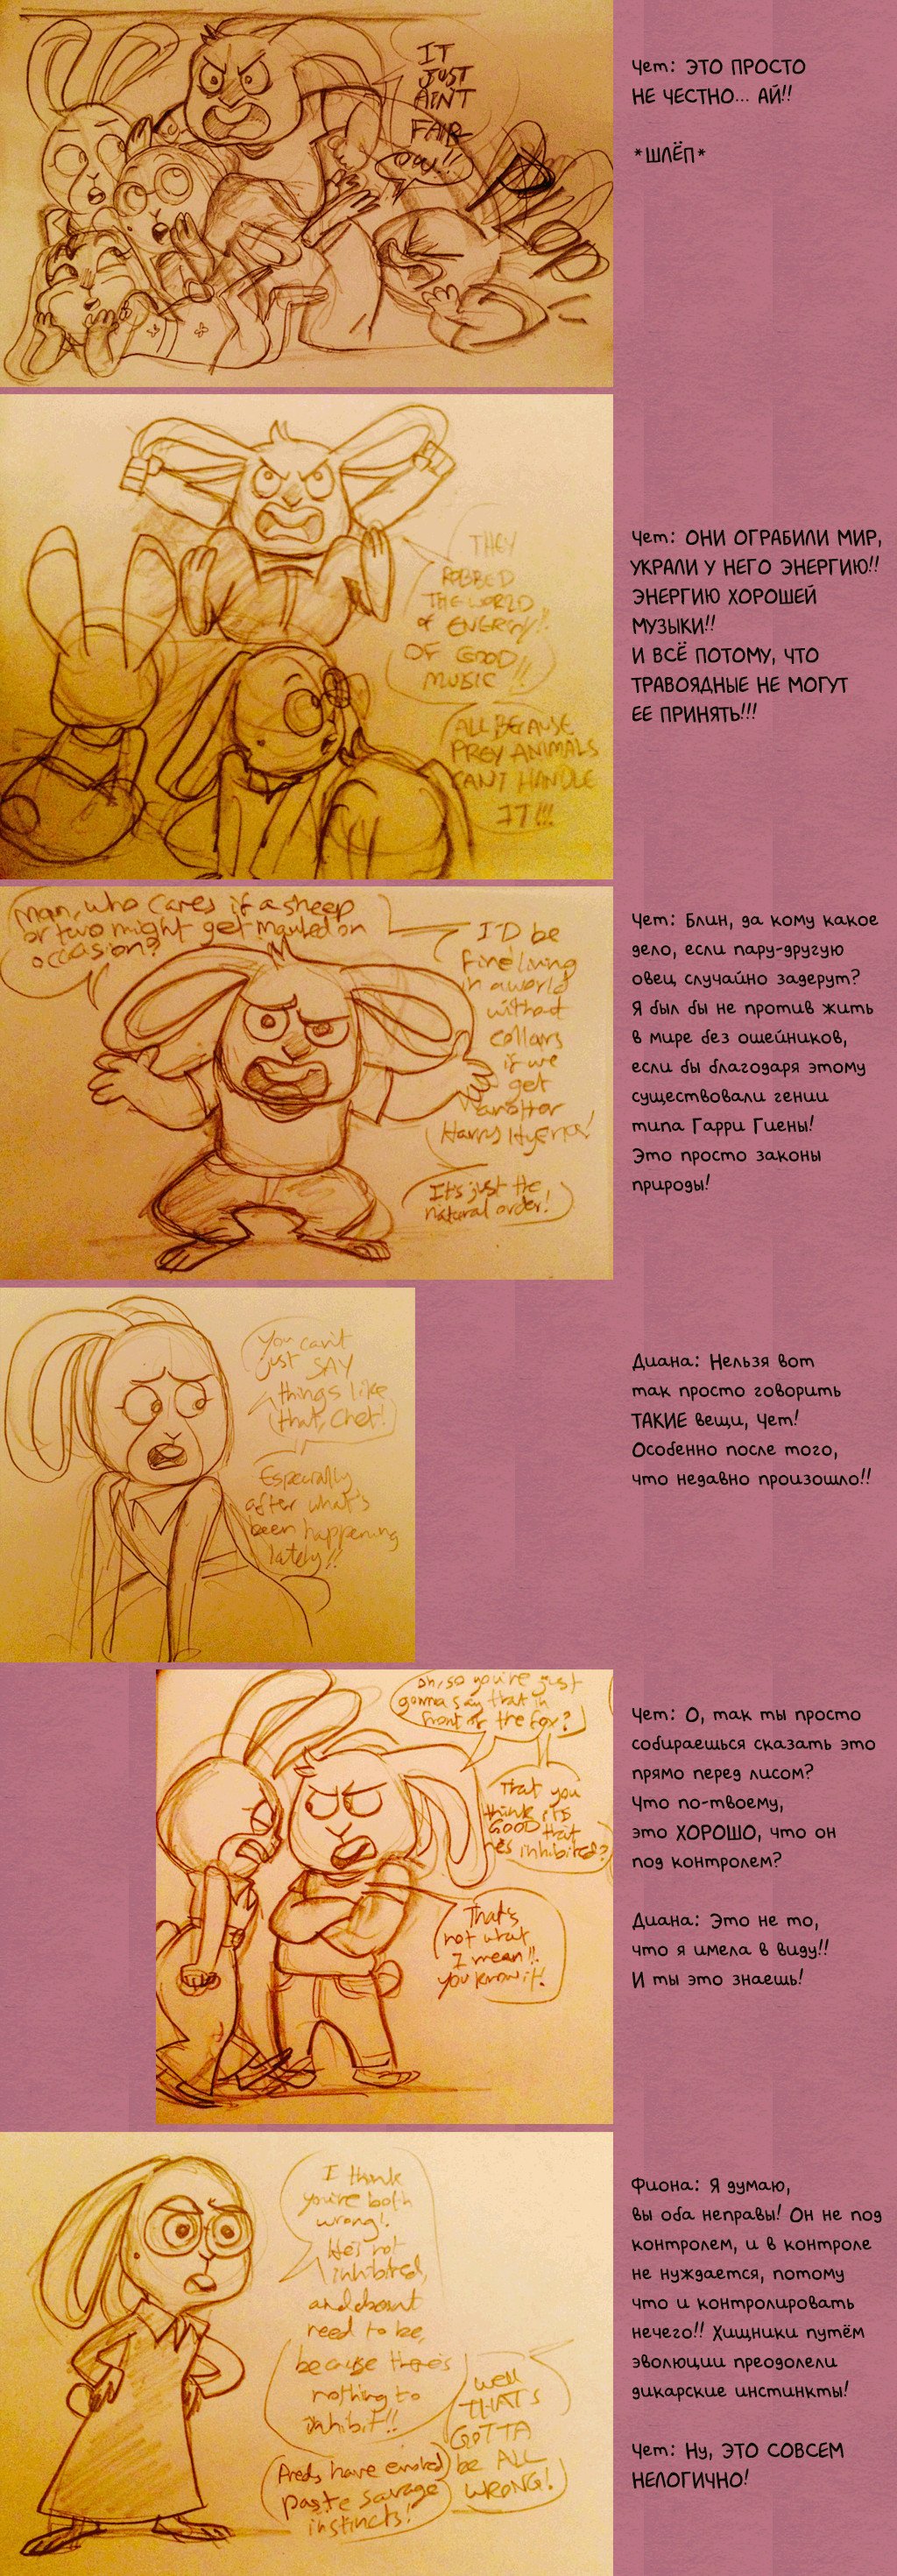 IT
JUST
AIN'T
FAIR
OW!!
PLOP
Чет: ЭТО ПРОСТО
НЕ ЧЕСТНО... АЙ!!
*ШЛЁП*
THEY
ROBBED
THE WORLD
of ENERGY!!
OF GOOD
MUSIC!!
ALL BECAUSE
PREY ANIMALS
CAN'T HANDLE
IT!!!
Чет: ОНИ ОГРАБИЛИ МИР,
УКРАЛИ У НЕГО ЭНЕРГИЮ!!
ЭНЕРГИЮ ХОРОШЕЙ
МУЗЫКИ!!
И ВСЁ ПОТОМУ, ЧТО
ТРАВОЯДНЫЕ НЕ МОГУТ
ЕЕ ПРИНЯТЬ!!!
Man, who cares if a sheep
or two might get mauled on
occasion?
I'D be
fine living
in a world
without
collars
if we
get
another
Harry Hyena!
It's just the
natural order!
Чет: Блин, да кому какое
дело, если пару-другую
овец случайно задерут?
Я был бы не против жить
в мире без ошейников,
если бы благодаря этому
существовали гении
типа Гарри Гиены!
Это просто законы
природы!
You can't
just SAY
things like
that, Chet!
Especially
after what's
been happening
lately!!
Диана: Нельзя вот
так просто говорить
ТАКИЕ вещи, Чет!
Особенно после того,
что недавно произошло!!
Oh, so you're just
gonna say that in
front of the fox?
That you
think it's
GOOD that
he's inhibited?
That's
not what
I mean!!
you know it!
Чет: О, так ты просто
собираешься сказать это
прямо перед лисом?
Что по-твоему,
это ХОРОШО, что он
под контролем?
Диана: Это не то,
что я имела в виду!!
И ты это знаешь!
I think
you're both
wrong!
He's not
inhibited,
and doesn't
need to be,
because there's
nothing to
inhibit!!
Preds have evolved
past e savage
instincts!
well
THAT'S
GOTTA
be ALL
WRONG!
Фиона: Я думаю,
вы оба неправы! Он не под
контролем, и в контроле
не нуждается, потому
что и контролировать
нечего!! Хищники путём
эволюции преодолели
дикарские инстинкты!
Чет: Ну, ЭТО СОВСЕМ
НЕЛОГИЧНО!